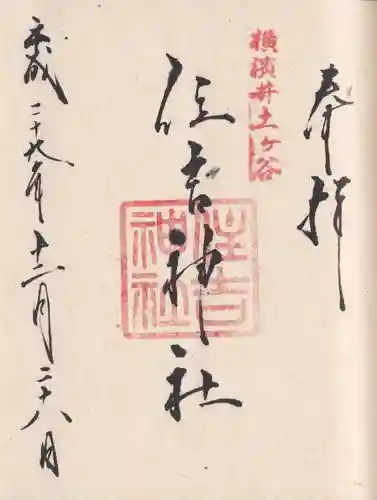 奉拝
横濱井土ヶ谷
住吉神社
住吉
神社
平成二十九年十二月二十八月